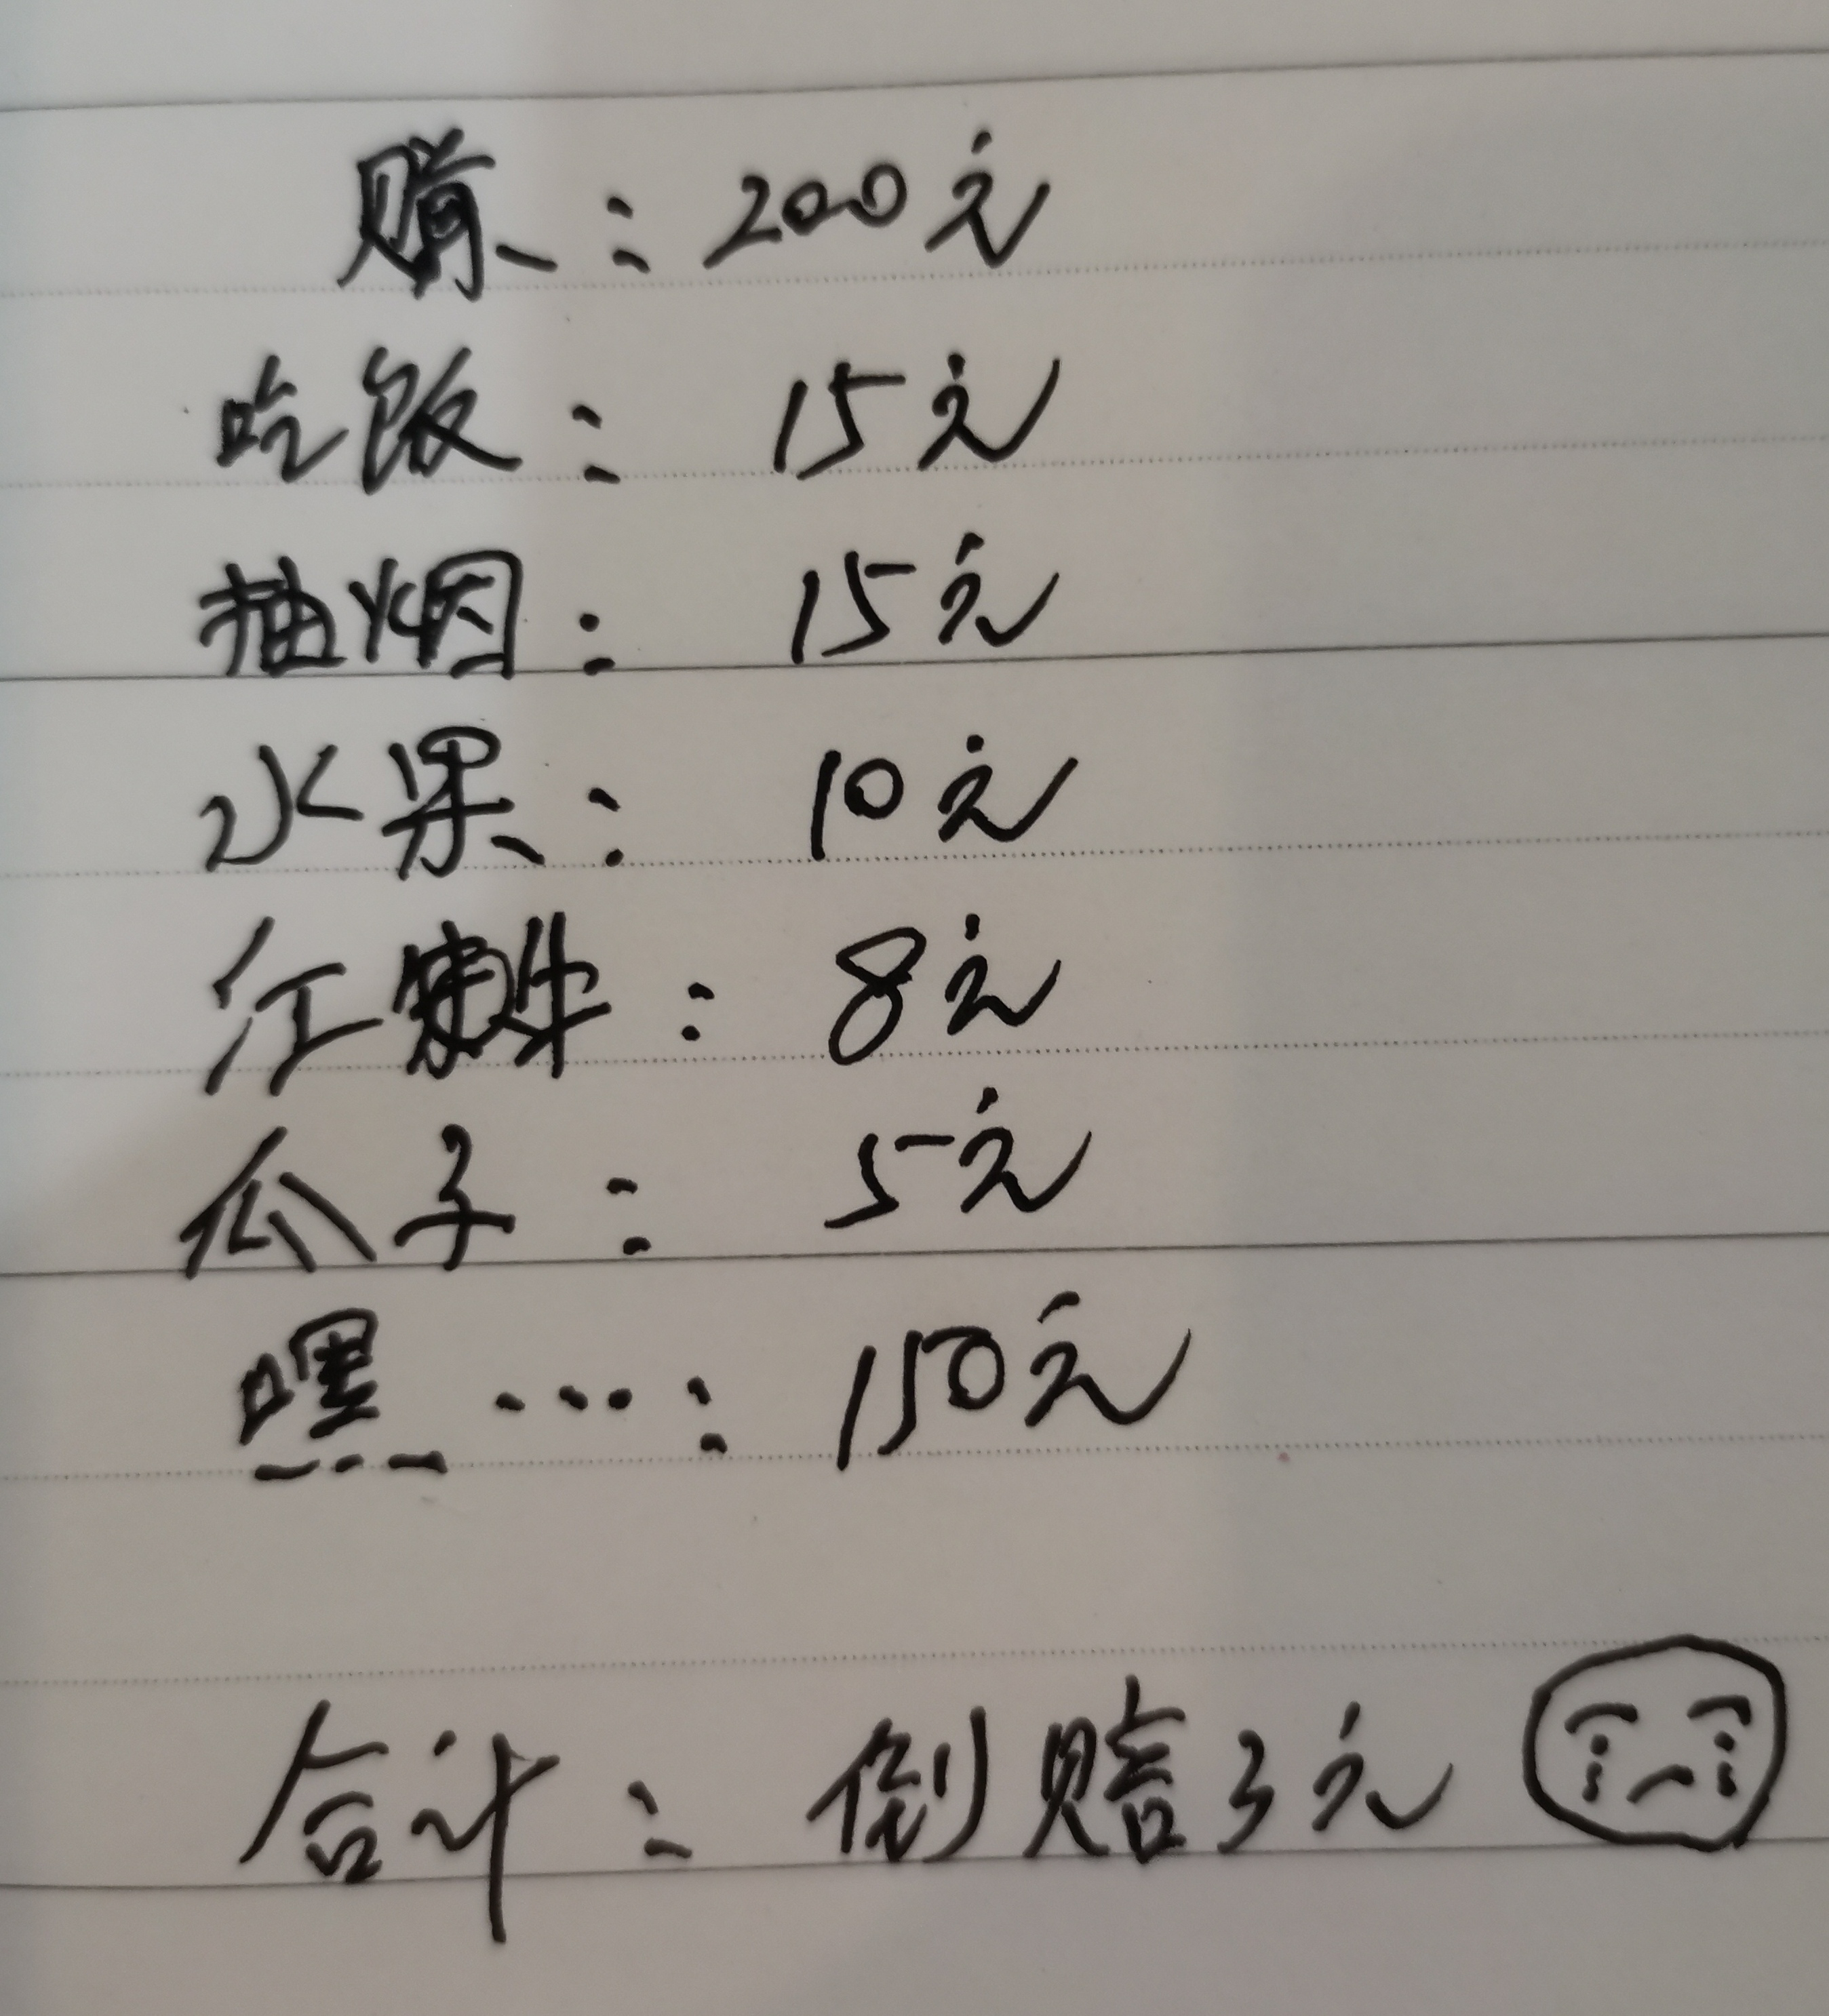 赚：200元
吃饭：15元
抽烟：15元
水果：10元
红牛：8元
瓜子：5元
嘿…：150元
合计：倒赔3元